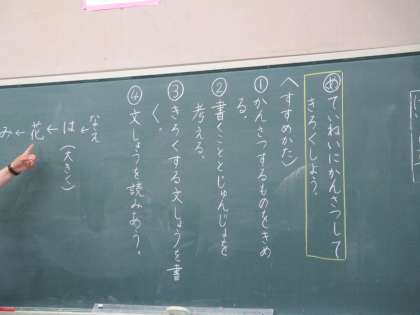 め ていねいにかんさつして
きろくしよう。
〈すすめかた〉
① かんさつするものをきめ
る。
② 書くこととじゅんじょを
考える。
③ きろくする文しょうを書
く。
④ 文しょうを読みあう。
なえ
←
は(大きく)
←
花
←
み